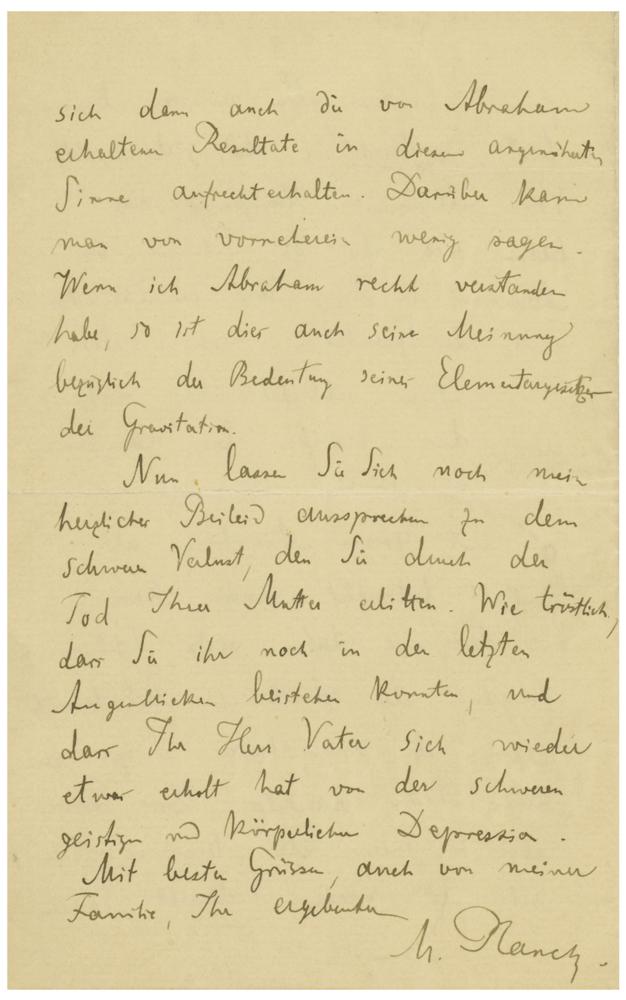 sich dann auch die von Abraham
erhaltenen Resultate in diesem angenäherten
Sinne aufrechterhalten. Darüber kann
man von vorneherein wenig sagen.
Wenn ich Abraham recht verstanden
habe, so ist dies auch seine Meinung
bezüglich der Bedeutung seiner Elementargesetze
der Gravitation.
Nun lassen Sie Sich noch mein
herzliches Beileid aussprechen zu dem
schweren Verlust, den Sie durch den
Tod Ihrer Mutter erlitten. Wie tröstlich,
dass Sie ihr noch in den letzten
Augenblicken beistehen konnten, und
dass Ihr Herr Vater sich wieder
etwas erholt hat von der schweren
geistigen und körperlichen Depression.
Mit besten Grüssen, auch von meiner
Familie, Ihr ergebenster
M. Planck.